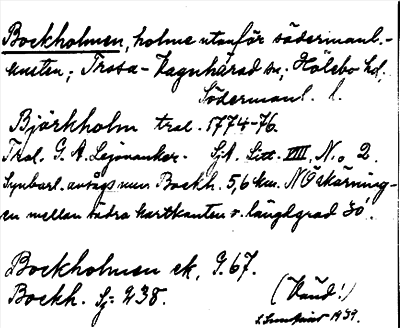 Bockholmen, holme utanför södermanl.-
kusten; Trosa-Vagnhärad sn; Hölebo hd,
Södermanl. l.
Björkholm tral. 1774-76.
Tral. G. A. Lejonanker. SjA. Litt. VIII, N:o 2.
Synbarl. avsågs nuv. Bockh. 5,6 km. NO skärning-
en mellan södra kartkanten o. längdgrad 30.
Bockholmen ek, 9.67.
Bockh. Sj: 238.
(Vänd!)
1939.